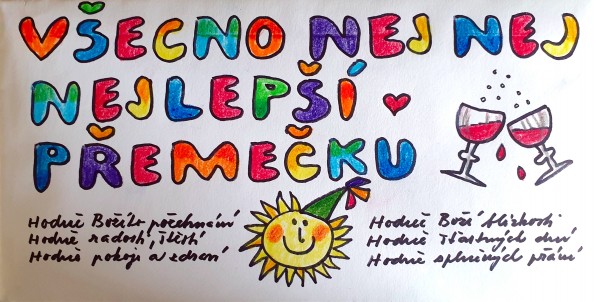 VŠECNO NEJ NEJ
NEJLEPŠÍ
PŘEMEČKU
Hodně Božího požehnání
Hodně radosti, štěstí
Hodně pokoje a zdraví
Hodně Boží blízkosti
Hodně šťastných dní
Hodně splněných přání